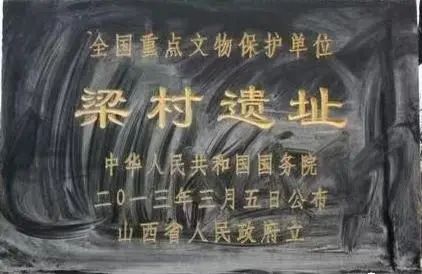 全国重点文物保护单位
梁村遗址
中华人民共和国国务院
二〇一三年三月五日公布
山西省人民政府立